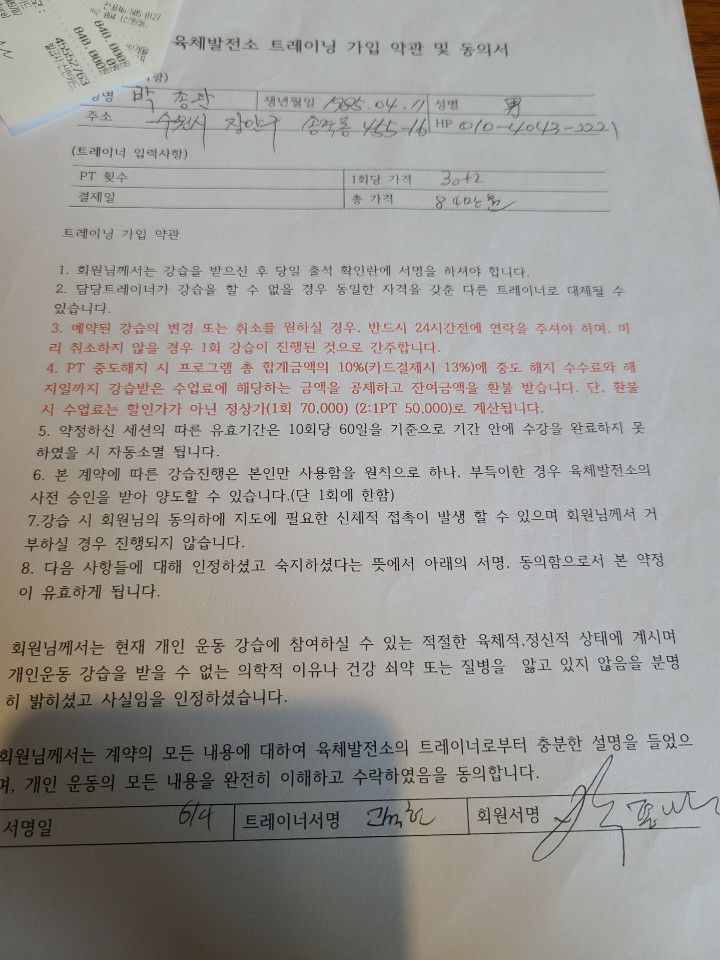 840,000원
840,000원
45552763
육체발전소 트레이닝 가입 약관 및 동의서
성명 박종관 생년월일 1985.04.11 성별 男
주소 수원시 장안구 송죽동 465-16 HP 010-4043-2221
(트레이너 입력사항)
PT 횟수 1회당 가격 30+2
결제일 총 가격 84만원
트레이닝 가입 약관
1. 회원님께서는 강습을 받으신 후 당일 출석 확인란에 서명을 하셔야 합니다.
2. 담당트레이너가 강습을 할 수 없을 경우 동일한 자격을 갖춘 다른 트레이너로 대체될 수
있습니다.
3. 예약된 강습의 변경 또는 취소를 원하실 경우, 반드시 24시간전에 연락을 주셔야 하며, 미
리 취소하지 않을 경우 1회 강습이 진행된 것으로 간주합니다.
4. PT 중도해지 시 프로그램 총 합계금액의 10%(카드결제시 13%)에 중도 해지 수수료와 해
지일까지 강습받은 수업료에 해당하는 금액을 공제하고 잔여금액을 환불 받습니다. 단, 환불
시 수업료는 할인가가 아닌 정상가(1회 70,000) (2:1PT 50,000)로 계산됩니다.
5. 약정하신 세션의 따른 유효기간은 10회당 60일을 기준으로 기간 안에 수강을 완료하지 못
하였을 시 자동소멸 됩니다.
6. 본 계약에 따른 강습진행은 본인만 사용함을 원칙으로 하나, 부득이한 경우 육체발전소의
사전 승인을 받아 양도할 수 있습니다.(단 1회에 한함)
7.강습 시 회원님의 동의하에 지도에 필요한 신체적 접촉이 발생 할 수 있으며 회원님께서 거
부하실 경우 진행되지 않습니다.
8. 다음 사항들에 대해 인정하셨고 숙지하셨다는 뜻에서 아래의 서명, 동의함으로서 본 약정
이 유효하게 됩니다.
회원님께서는 현재 개인 운동 강습에 참여하실 수 있는 적절한 육체적,정신적 상태에 계시며
개인운동 강습을 받을 수 없는 의학적 이유나 건강 쇠약 또는 질병을 앓고 있지 않음을 분명
히 밝히셨고 사실임을 인정하셨습니다.
회원님께서는 계약의 모든 내용에 대하여 육체발전소의 트레이너로부터 충분한 설명을 들었으
며, 개인 운동의 모든 내용을 완전히 이해하고 수락하였음을 동의합니다.
서명일 6/4 트레이너서명 회원서명